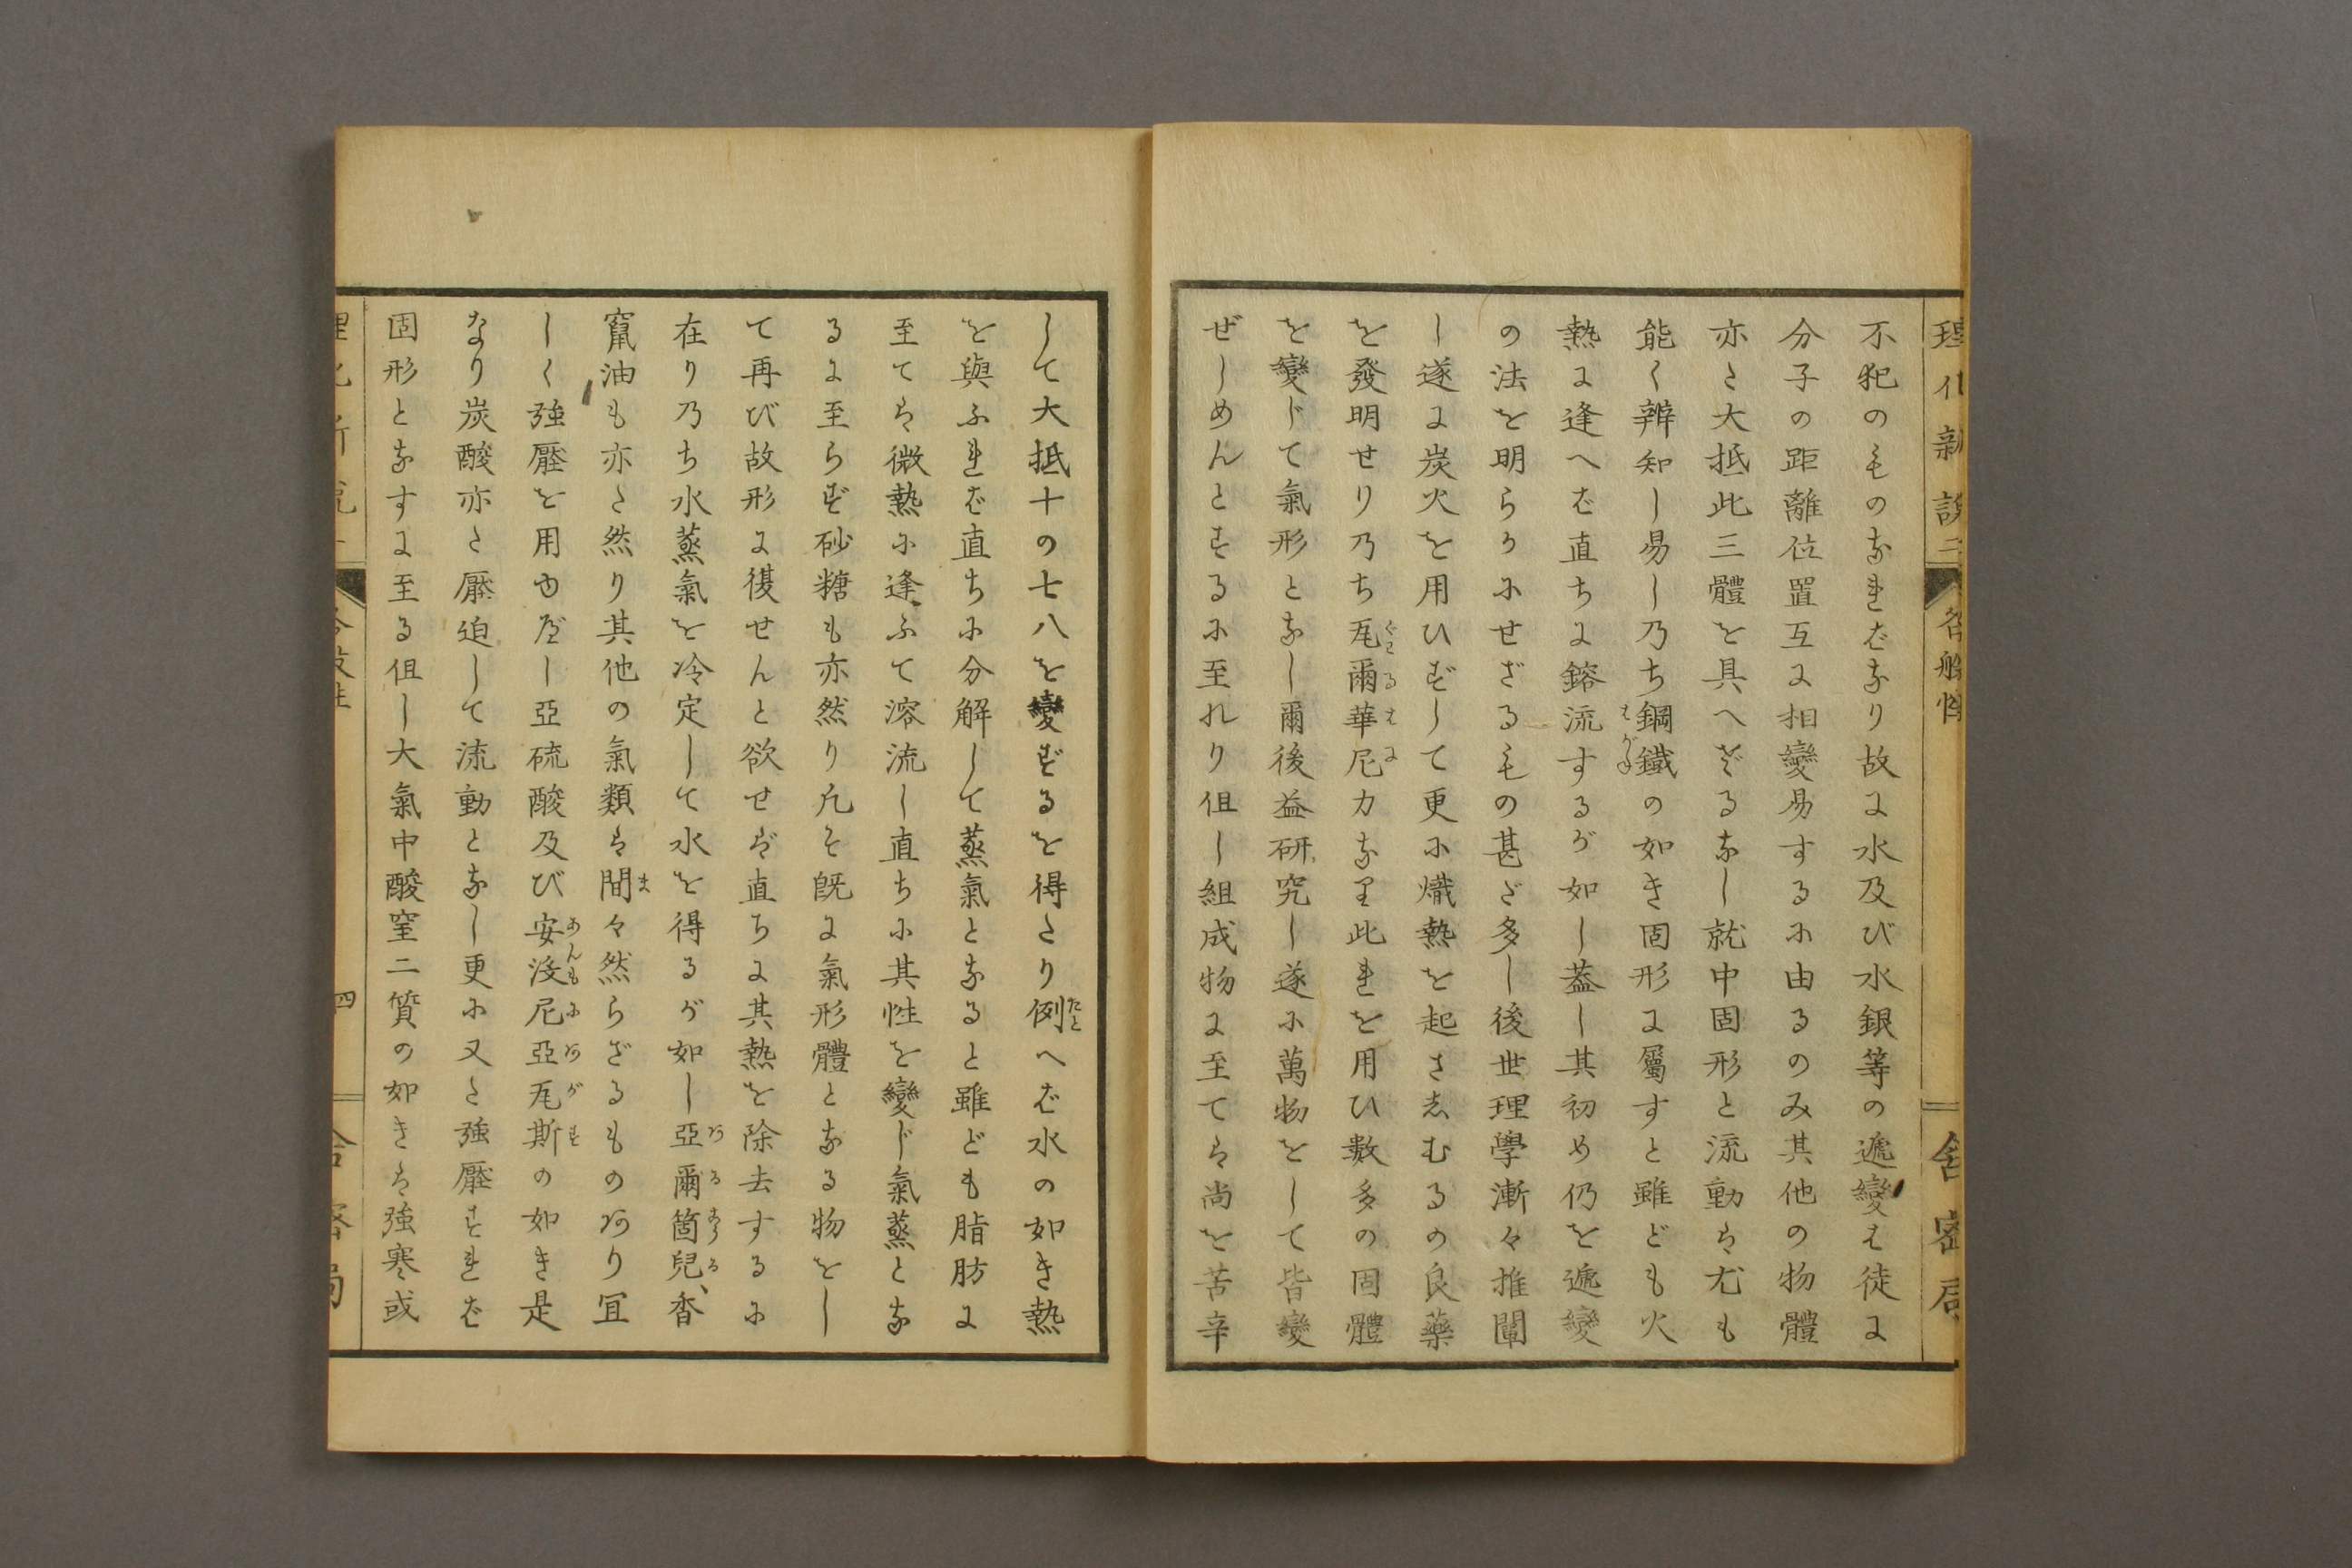 理化新説二
各般性
舎密局
不犯のものなればなり故に水及び水銀等の遞變は徒に
分子の距離位置互に相變易するに由るのみ其他の物體
亦た大抵此三體を具へざるなし就中固形と流動は尤も
能く辨知し易し乃ち鋼鐵の如き固形に屬すと雖ども火
はがね
熱に逢へば直ちに鎔流するが如し蓋し其初め仍を遞變
の法を明らかにせざるもの甚ざ多し後世理學漸々推闡
し遂に炭火を用ひずして更に熾熱を起さしむるの良藥
を發明せり乃ち瓦爾華尼力なり此れを用ひ數多の固體
ぐわるはに
を變じて氣形となし爾後益研究し遂に萬物をして皆變
ぜしめんとするに至れり但し組成物に至ては尚を苦辛
して大抵十の七八を變ずるを得たり例へば水の如き熱
たと
を與ふれば直ちに分解して蒸氣となると雖ども脂肪に
至ては微熱に逢ふて溶流し直ちに其性を變じ氣蒸とな
るに至らず砂糖も亦然り凡そ既に氣形體となる物をし
て再び故形に復せんと欲せば直ちに其熱を除去するに
在り乃ち水蒸氣を冷定して水を得るが如し亞爾箇兒、香
あるこうる
竄油も亦た然り其他の氣類は間々然らざるものあり冝
ま
しく強壓を用ゆべし亞硫酸及び安没尼亞瓦斯の如き是
あんもにあがす
なり炭酸亦た壓迫して流動となし更に又た強壓すれば
固形となすに至る但し大氣中酸窒二質の如きは強寒或
四